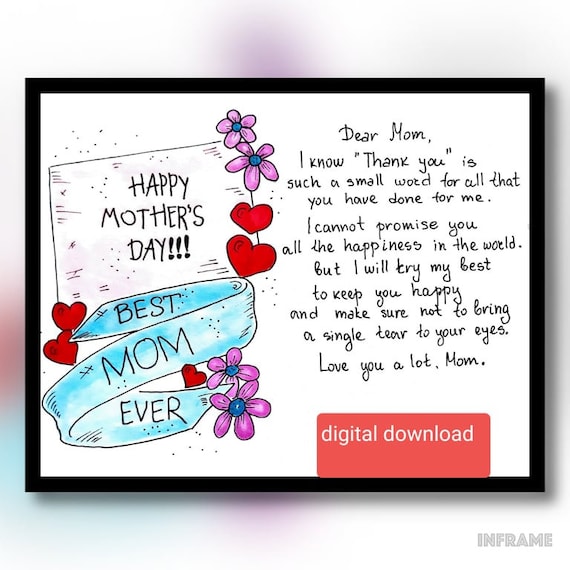 HAPPY
MOTHER'S
DAY!!!
BEST
MOM
EVER
Dear Mom,
I know "Thank you" is
such a small word for all that
you have done for me.
I cannot promise you
all the happiness in the world.
but I will try my best
to keep you happy
and make sure not to bring
a single tear to your eyes.
Love you a lot, Mom.
digital download
INFRAME